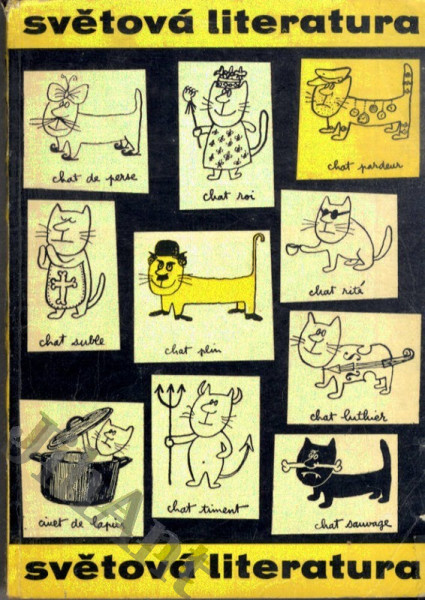 světová literatura
chat de perse
chat roi
chat pardeur
chat suble
chat plin
chat rité
chat luthier
civet de lapin
chat timent
chat sauvage
světová literatura